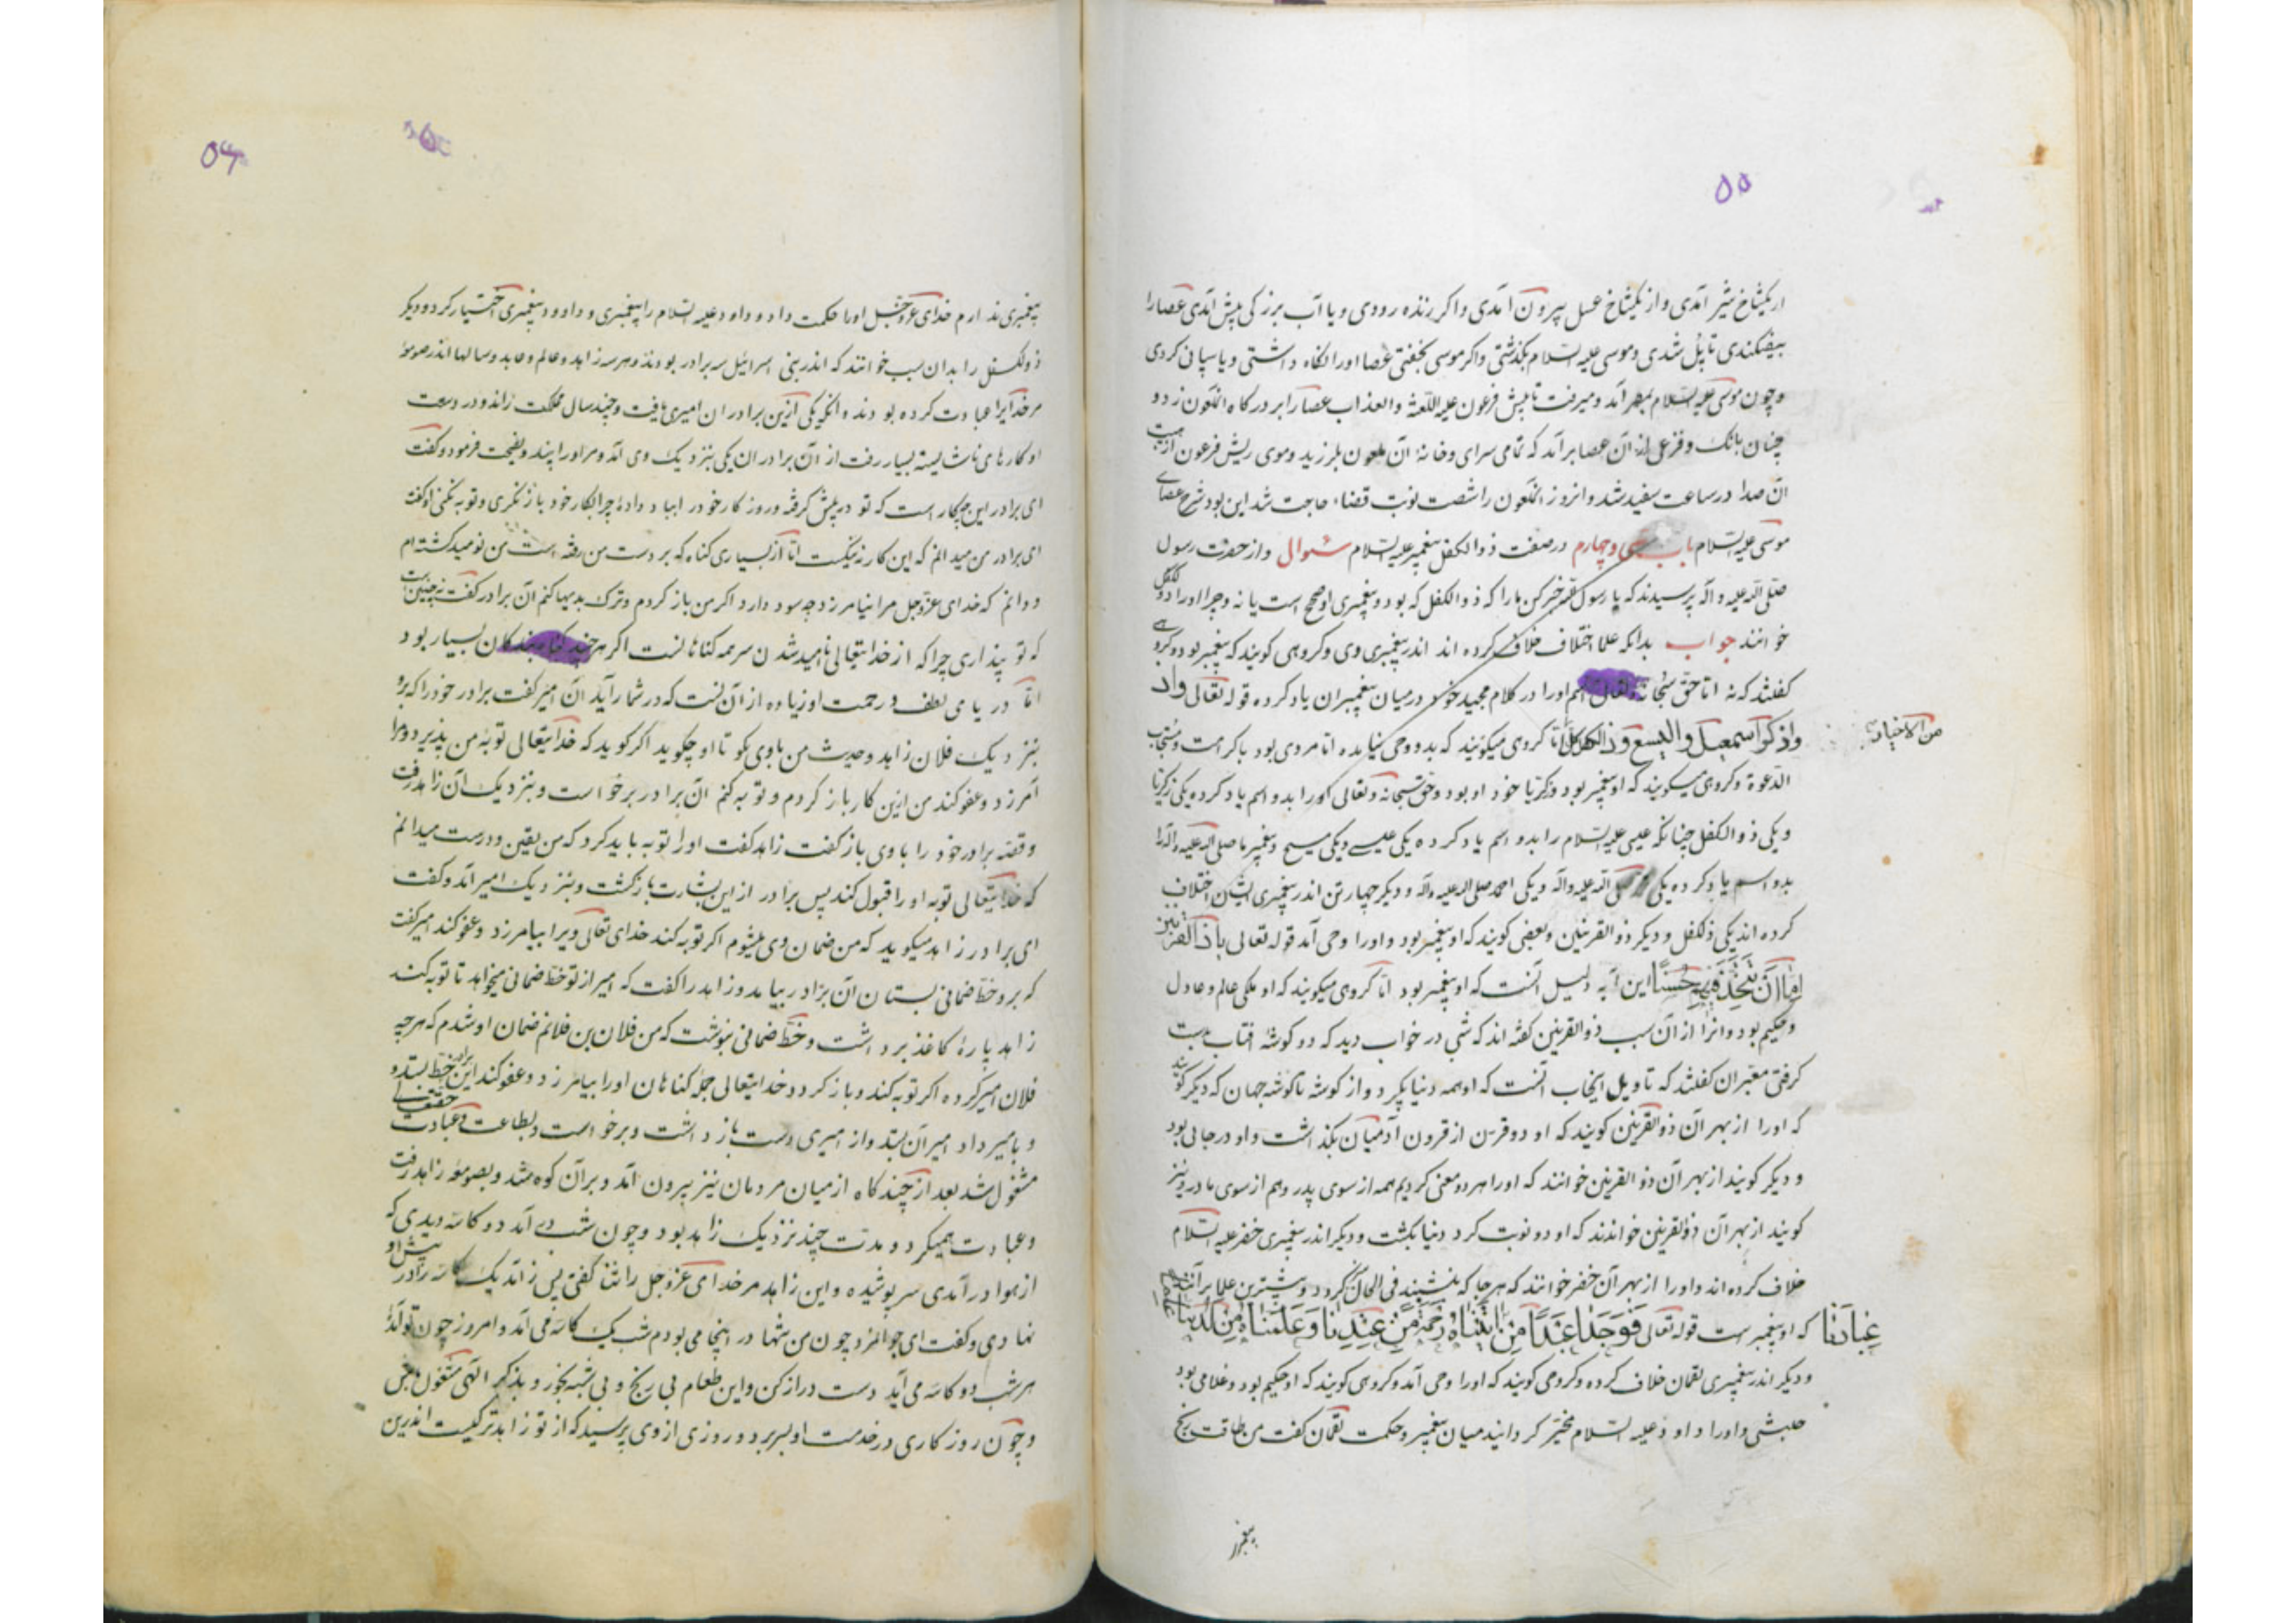 ۵۵
از یکشاخ شیر آمدی و از یکشاخ عسل بیرون آمدی و اگر رنده رودی و یا آب بزرکی پیش آمدی عصا را
بیفکندی تا پل شدی و موسی علیه السلام بگذشتی و اکر موسی بخفتی عصا او را نکاه داشتی و پاسپانی کردی
و چون موسی علیه السلام بمصر آمد و میرفت تا پیش فرعون علیه اللعنة والعذاب عصا را بر درکاه انملعون زد و
چنان بانک و فزعی از آن عصا برآمد که تمامی سرای و خانهٔ آن ملعون بلرزید و موی ریش فرعون از هیبت
آن صدا در ساعت سفید شد و انروز انملعون را شصت نوبت قضاء حاجت شد این بود شرح عصای
موسی علیه السلام باب سی و چهارم در صفت ذو الکفل پیغمبر علیه السلام سؤال و از حضرت رسول
صلی الله علیه و آله پرسیدند که یا رسول الله خبر کن ما را که ذو الکفل که بود و پیغمبری او صحیح است یا نه و چرا او را ذو الکفل
خوانند جواب بدانکه علما اختلاف خلاف کرده اند اندر پیغمبری وی و کروهی کویند که پیغمبر بود و کروهی
کفتند که نه اما حق سبحانه و تعالی اسم او را در کلام مجید خود در میان پیغمبران یاد کرده قوله تعالی واذ
واذکر اسمعیل والیسع وذا الکفل کل اما کروهی میکویند که بدو وحی نیامده اما مردی بود با کرامت و مستجاب
من الاخیار
الدعوة و کروهی میکویند که او پیغمبر بود و زکریا خود او بود و حق سبحانه و تعالی او را بدو اسم یاد کرده یکی زکریا
و یکی ذو الکفل چنانکه عیسی علیه السلام را بدو اسم یاد کرده یکی عیسی و یکی مسیح و پیغمبر ما صلی الله علیه و آله را
بدو اسم یاد کرده یکی محمد صلی الله علیه و آله و یکی احمد صلی الله علیه و آله و دیکر چهار تن اندر پیغمبری ایشان اختلاف
کرده اند یکی ذلکفل و دیکر ذو القرنین و بعضی کویند که او پیغمبر بود و او را وحی آمد قوله تعالی یا ذا القرنین
اما ان تتخذ فیهم حسنا این آیه دلیل آنست که او پیغمبر بود اما کروهی میکویند که او ملکی عالم و عادل
و حکیم بود و انرا از آن سبب ذو القرنین کفته اند که شبی در خواب دید که دو کوشهٔ آفتاب بدست
کرفتی معبران کفتند که تاویل اینخاب آنست که او همه دنیا بکیرد و از کوشه تا کوشه جهان که دیکر کویند
که او را از بهر آن ذو القرنین کویند که او دو قرن از قرون آدمیان بکذاشت و او در جایی بود
و دیکر کویند از بهر آن ذو القرنین خوانند که او را هر دو معنی کردیم همه از سوی پدر و هم از سوی مادر و نیز
کویند از بهر آن ذو القرنین خواندند که او دو نوبت کرد دنیا بکشت و دیکر اندر پیغمبری خضر علیه السلام
خلاف کرده اند و او را از بهر آن خضر خوانند که هر جا که بنشیند فی الحال سبز کردد و بیشترین علما بر آنند
که او پیغمبرست قوله تعالی فوجدا عبدا من عبادنا اتیناه رحمة من عندنا وعلمناه من لدنا علما
و دیکر اندر پیغمبری لقمان خلاف کرده و کروهی کویند که او را وحی آمد و کروهی کویند که او حکیم بود و غلامی بود
حبشی و او را داود علیه السلام مخیر کردانید میان پیغمبر و حکمت لقمان کفت من طاقت رنج
پیغمبر
۵۶
پیغمبری ندارم خدای عزوجل او را حکمت داد و داود علیه السلام را پیغمبری و داود پیغمبری اختیار کرد و دیکر
ذو لکفل را بدان سبب خوانند که اندر بنی اسرائیل سه برادر بودند و هر سه زاهد و عالم و عابد و سالها اندر صومعه
مر خدایرا عبادت کرده بودند و انکه یکی ازین برادران امیری یافت و چند سال مملکت راند و در دست
او کارهای ناشایسته بسیار رفت از آن برادران یکی بنزدیک وی آمد و مر او را پند و نصیحت فرمود و کفت
ای برادر این چکار است که تو در پیش کرفتهٔ و روزکار خود را بباد دادهٔ چرا بکار خود باز ننکری و توبه نکنی او کفت
ای برادر من میدانم که این کار نه نیکست اما از بسیاری کناه که بر دست من رفته است من نومید کشته ام
و دانم که خدای عزوجل مرا نیامرزد چه سود دارد اکر من باز کردم و ترک بدیها کنم آن برادر کفت نه چنین است
که تو پنداری چرا که از خدایتعالی نا امید شدن سر همه کناهانست اکر هر چند کناه بندکان بسیار بود
اما دریای لطف و رحمت او زیاده از آن است که در شمار آید آن امیر کفت برادر خود را که برو
بنزدیک فلان زاهد و حدیث من با وی بکو تا او چکوید اکر کوید که خدایتعالی توبهٔ من پذیرد و مرا
آمرزد و عفو کند من ازین کار باز کردم و توبه کنم آن برادر برخواست و بنزدیک آن زاهد رفت
و قصه برادر خود را با وی باز کفت زاهد کفت او را توبه باید کرد که من یقین و درست میدانم
که خدایتعالی توبه او را قبول کند پس برادر از این بشارت بازکشت و بنزدیک امیر آمد و کفت
ای برادر زاهد میکوید که من ضمان وی میشوم اکر توبه کند خدای تعالی ویرا بیامرزد و عفو کند امیر کفت
که برو خط ضمانی بستان آن برادر بیامد و زاهد را کفت که امیر از تو خط ضمانی میخواهد تا توبه کند
زاهد پارهٔ کاغذ برداشت و خط ضمانی بنوشت که من فلان بن فلانم ضمان او شدم که هر چه
فلان امیر کرده اکر توبه کند و باز کردد خدایتعالی جمله کناهان او را بیامرزد و عفو کند این برادر خط بستد و
و بامیر داد امیر آن بستد و از امیری دست باز داشت و برخواست و بطاعت و عبادت حقتعالی
مشغول شد بعد از چند کاه از میان مردمان نیز بیرون آمد و بر آن کوه شد و بصومعهٔ زاهد رفت
و عبادت همیکرد و مدت چند نزدیک زاهد بود و چون شب در آمد دو کاسه دیدی که
از هوا در آمدی سر پوشیده و این زاهد مر خدای عزوجل را ثنا کفتی پس زاهد یک کاسه را در پیش او
نهادی و کفت ای جوانمرد چون من تنها در اینجا می بودم شب یک کاسه می آمد و امروز چون تو آمدهٔ
هر شب دو کاسه می آید دست دراز کن و این طعام بی رنج و بی شبهه بخور و بذکر الهی مشغول باش
و چون روزکاری در خدمت او بسر برد و روزی از وی پرسید که از تو زاهدتر کیست اندرین